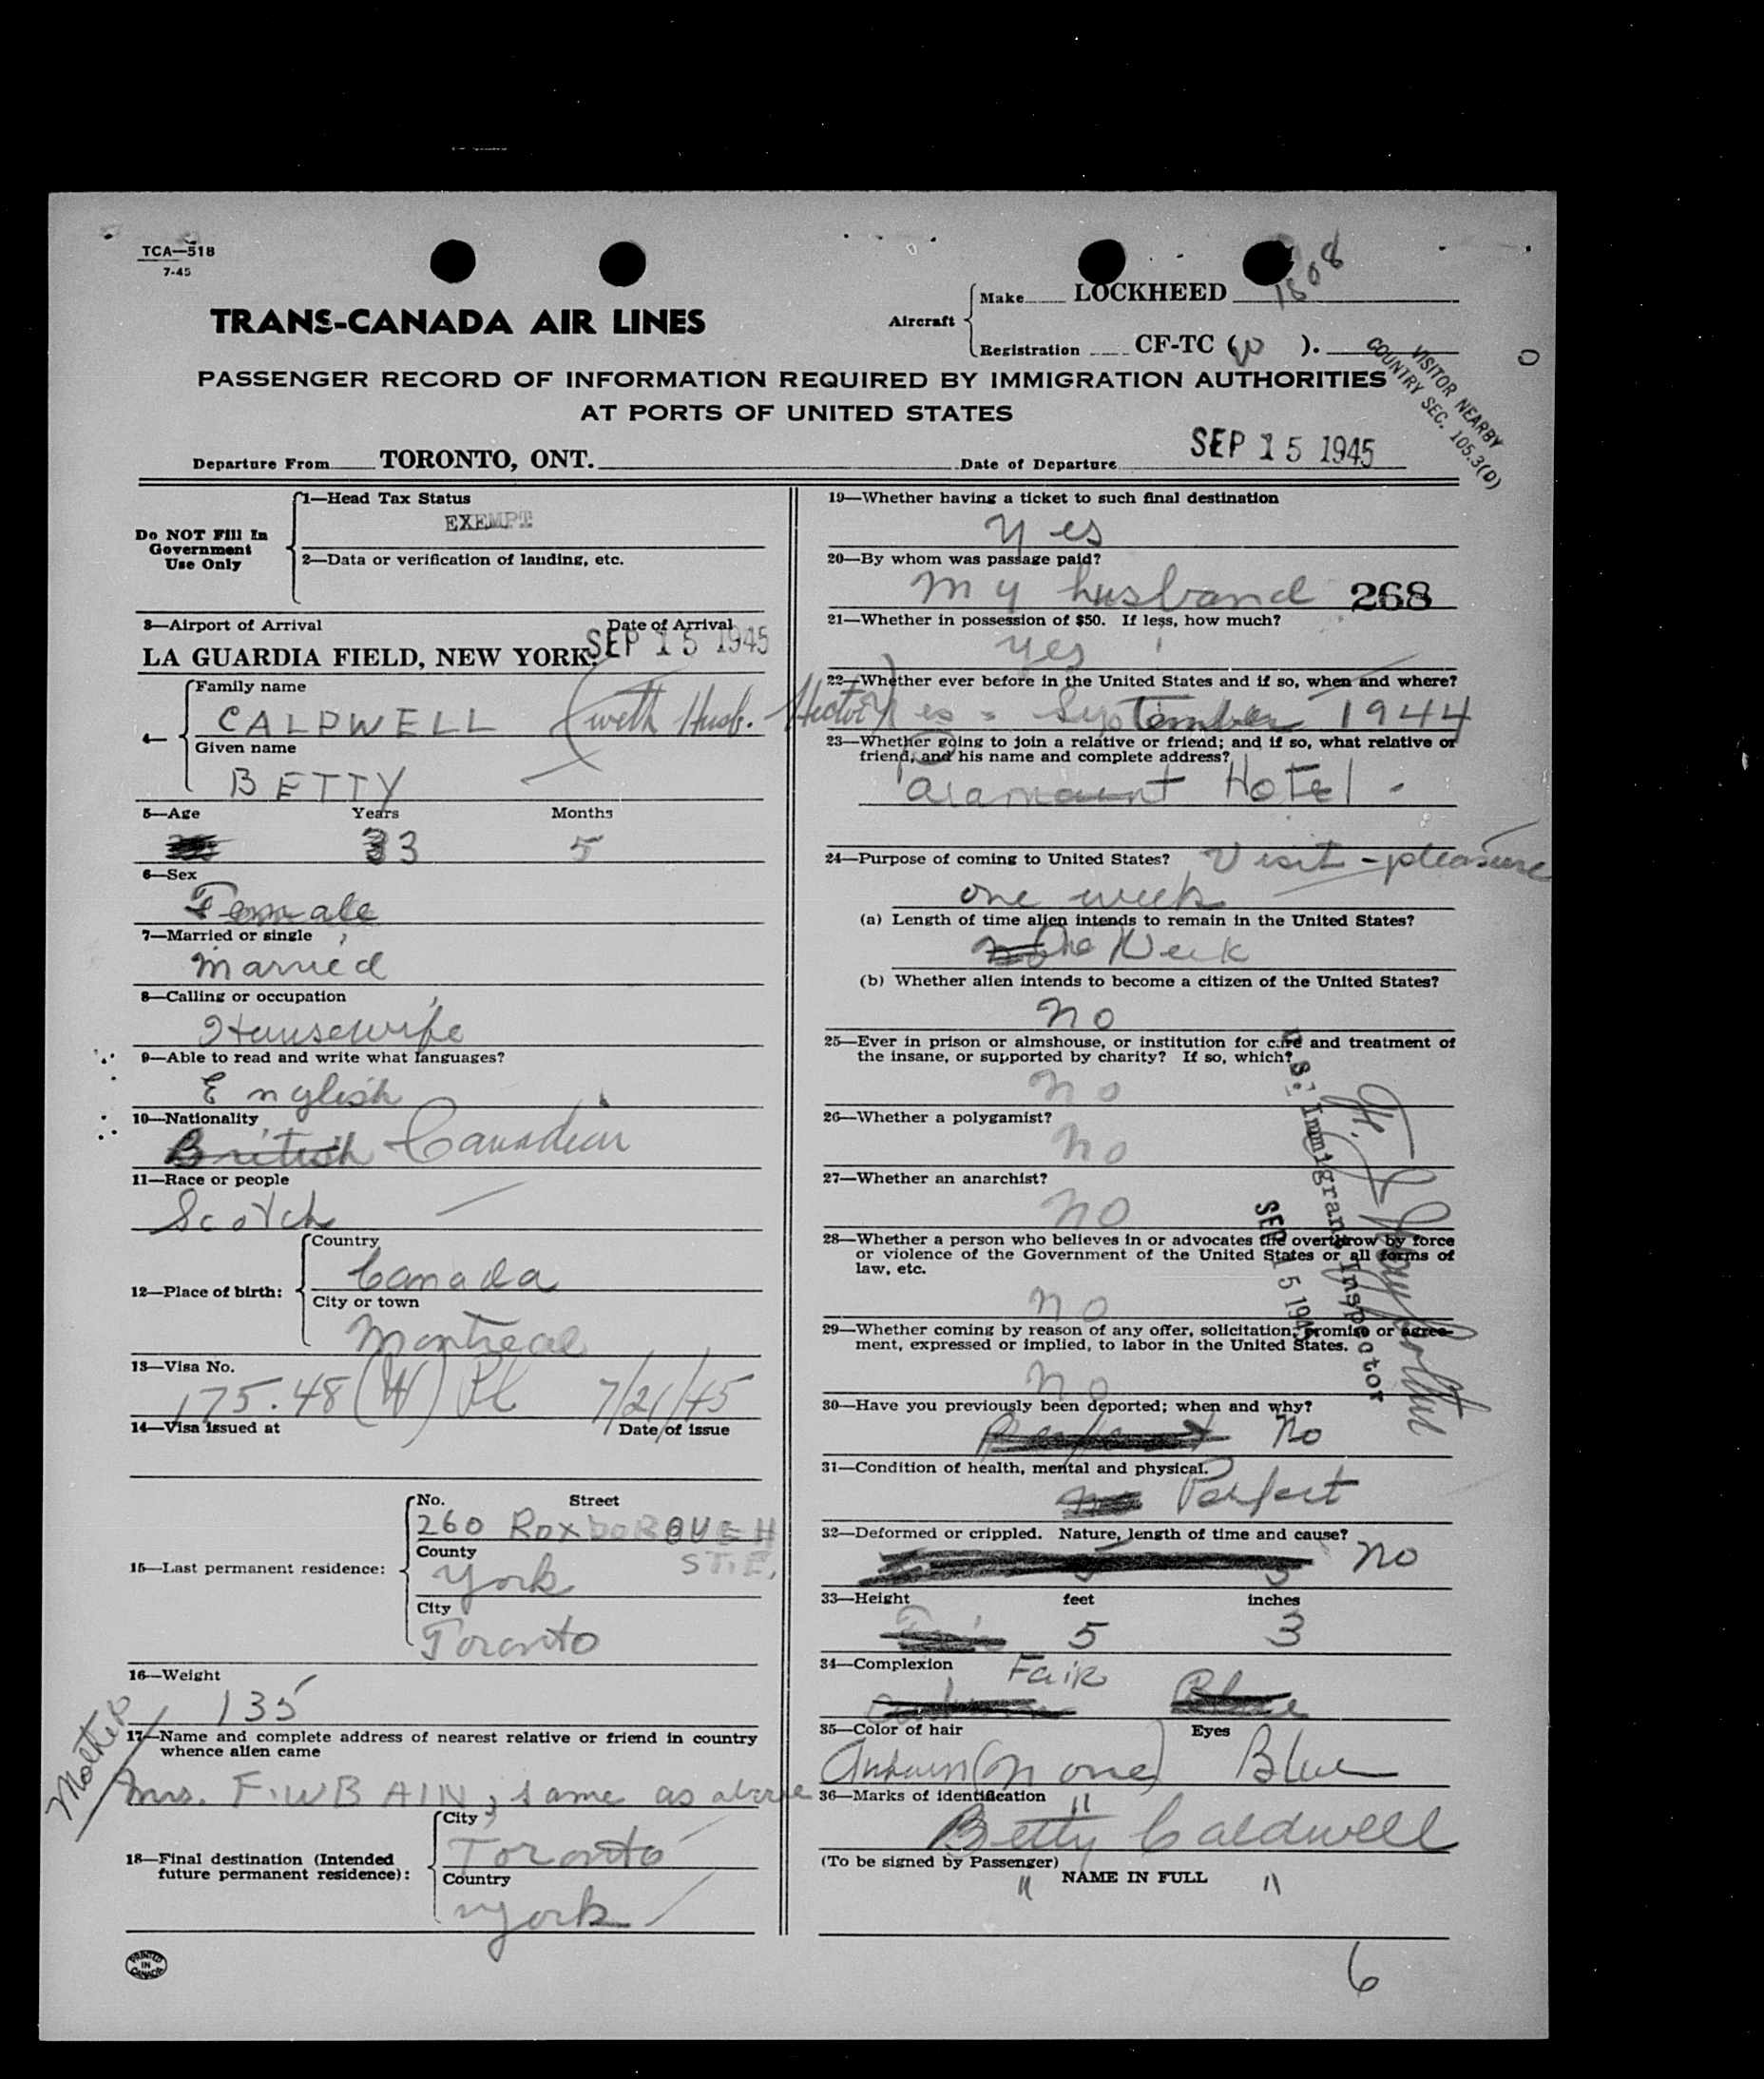 TCA—518
7-45
1808
Make LOCKHEED
TRANS-CANADA AIR LINES
Aircraft
Registration CF-TC ( ).
VISITOR NEARBY
COUNTRY SEC. 105.3(D)
PASSENGER RECORD OF INFORMATION REQUIRED BY IMMIGRATION AUTHORITIES
AT PORTS OF UNITED STATES
Departure From TORONTO, ONT. Date of Departure SEP 15 1945
Do NOT Fill In
Government
Use Only
1—Head Tax Status
EXEMPT
2—Data or verification of landing, etc.
3—Airport of Arrival Date of Arrival
LA GUARDIA FIELD, NEW YORK. SEP 15 1945
4—
Family name
CALDWELL (with Husb. Hector)
Given name
BETTY
5—Age Years Months
33 5
6—Sex
Female
7—Married or single
Married
8—Calling or occupation
Housewife
9—Able to read and write what languages?
English
10—Nationality
British Canadian
11—Race or people
Scotch
12—Place of birth:
Country
Canada
City or town
Montreal
13—Visa No.
175.48 (W) PL 7/21/45
14—Visa issued at Date of issue
15—Last permanent residence:
No. Street
260 ROXBOROUGH
ST. E.
County
York
City
Toronto
16—Weight
135
Mother
17—Name and complete address of nearest relative or friend in country
whence alien came
Mrs. F. W BAIN, same as above
18—Final destination (Intended
future permanent residence):
City
Toronto
Country
York
PRINTED
IN
CANADA
19—Whether having a ticket to such final destination
yes
20—By whom was passage paid?
My husband 268
21—Whether in possession of $50. If less, how much?
yes
22—Whether ever before in the United States and if so, when and where?
yes - September 1944
23—Whether going to join a relative or friend; and if so, what relative or
friend, and his name and complete address?
Paramount Hotel -
24—Purpose of coming to United States? Visit - pleasure
one week
(a) Length of time alien intends to remain in the United States?
One Week
(b) Whether alien intends to become a citizen of the United States?
No
25—Ever in prison or almshouse, or institution for care and treatment of
the insane, or supported by charity? If so, which?
No
26—Whether a polygamist?
No
27—Whether an anarchist?
No
28—Whether a person who believes in or advocates the overthrow by force
or violence of the Government of the United States or all forms of
law, etc.
No
29—Whether coming by reason of any offer, solicitation, promise or agree-
ment, expressed or implied, to labor in the United States.
No
U.S. Immigrant Inspector
SEP 15 1945
30—Have you previously been deported; when and why?
Perfect No
31—Condition of health, mental and physical.
no Perfect
32—Deformed or crippled. Nature, length of time and cause?
No
33—Height feet inches
5 3
34—Complexion Fair
Blue
35—Color of hair Eyes
Auburn (None) Blue
36—Marks of identification
Betty Caldwell
(To be signed by Passenger)
" NAME IN FULL "
6